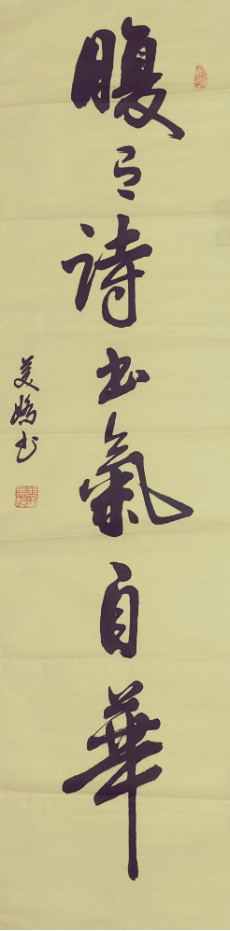 腹有詩书氣自華
美鹏书